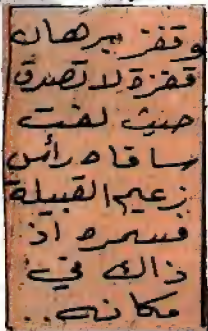 وقفز برهان
قفزة لا تصدق
حيث لفت
ساقاه رأس
زعيم القبيلة
فسمره اذ
ذاك في
مكانه..